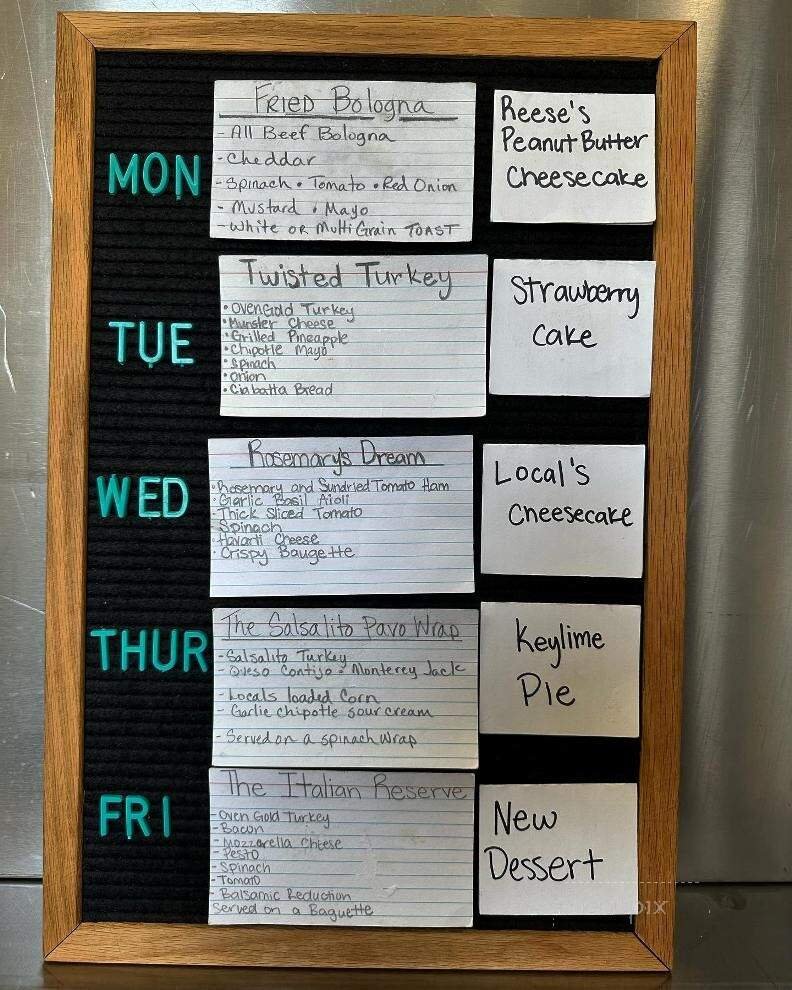 MON
FRIED Bologna
- All Beef Bologna
- Cheddar
- Spinach • Tomato • Red Onion
- Mustard • Mayo
- White OR Multi Grain TOAST
Reese's
Peanut Butter
Cheesecake
TUE
Twisted Turkey
• OvenGold Turkey
• Munster Cheese
• Grilled Pineapple
• Chipotle Mayo
• Spinach
• Onion
• Ciabatta Bread
Strawberry
Cake
WED
Rosemary's Dream
• Rosemary and Sundried Tomato Ham
• Garlic Basil Aioli
- Thick Sliced Tomato
- Spinach
• Havarti Cheese
• Crispy Baugette
Local's
Cheesecake
THUR
The Salsalito Pavo Wrap
- Salsalito Turkey
- Queso Contijo • Monterey Jack
- Locals loaded Corn
- Garlic chipotle sour cream
- Served on a spinach wrap
Keylime
Pie
FRI
The Italian Reserve
- Oven Gold Turkey
- Bacon
- Mozzarella Cheese
- Pesto
- Spinach
- Tomato
- Balsamic Reduction
Served on a Baguette
New
Dessert